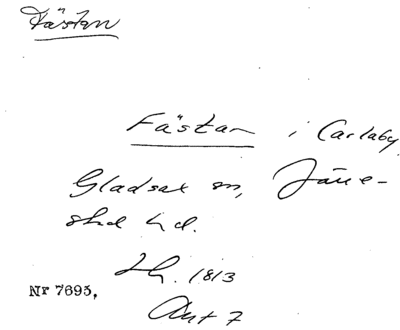 Fästan
Fästan i Carlaby
Gladsax sn, Järre-
stad hd.
Lh. 1813
Akt 7
Nr 7693,